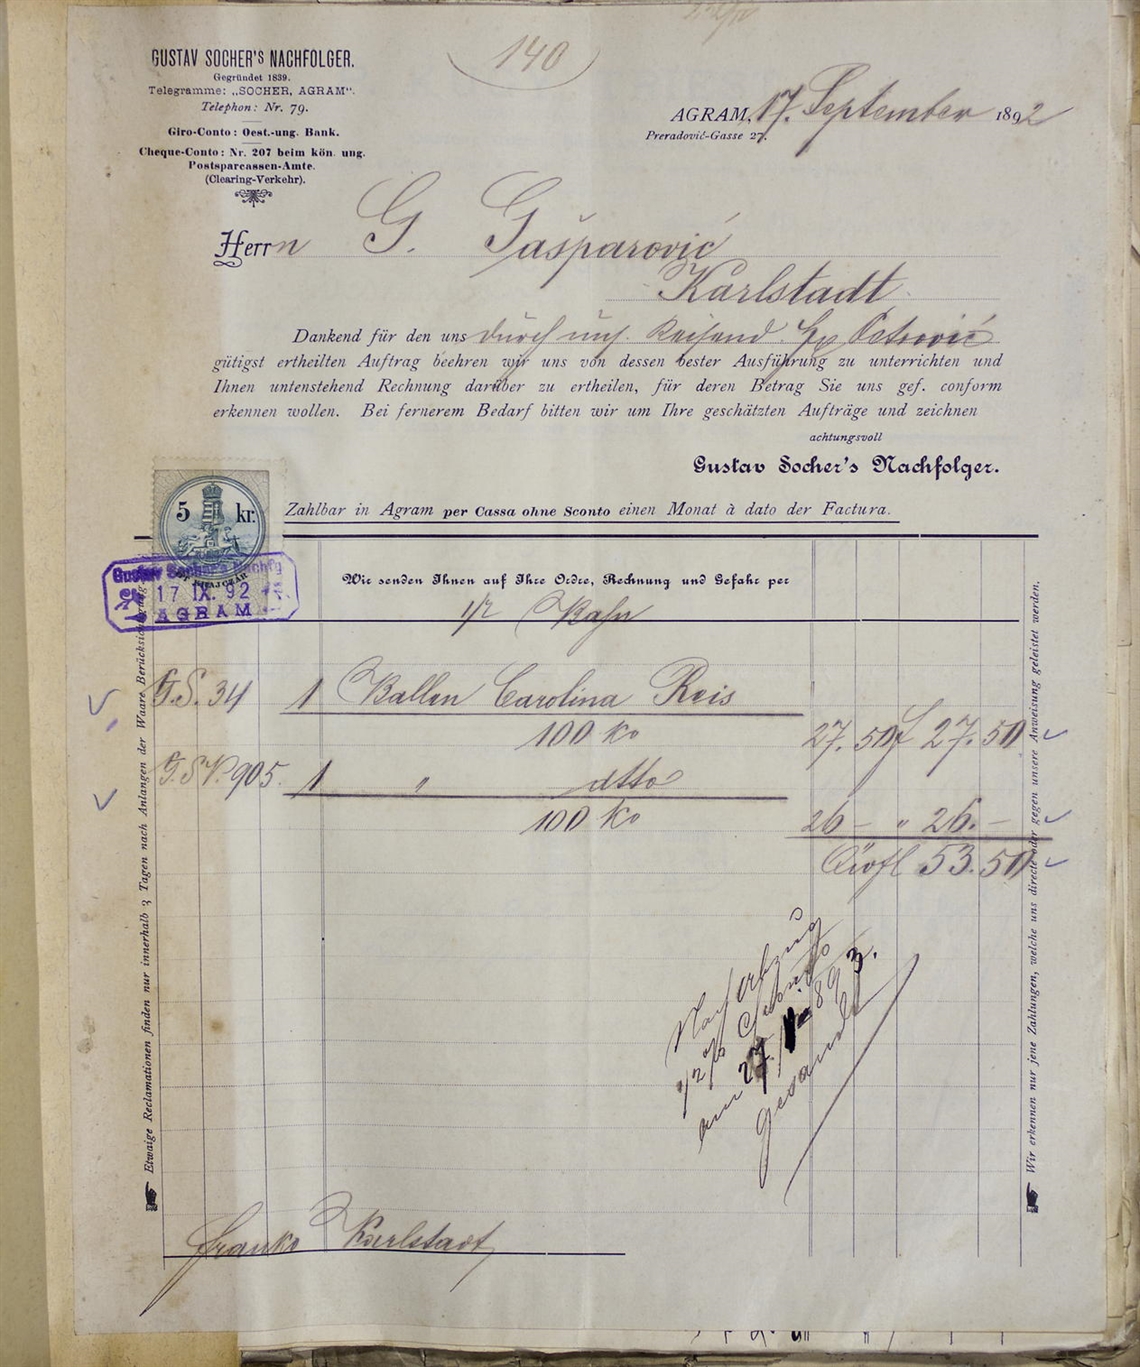 140
GUSTAV SOCHER'S NACHFOLGER.
Gegründet 1839.
Telegramme: „SOCHER, AGRAM“.
Telephon: Nr. 79.
Giro-Conto: Oest.-ung. Bank.
Cheque-Conto: Nr. 207 beim kön. ung.
Postsparcassen-Amte.
(Clearing-Verkehr).
AGRAM, 17. September 1892
Preradović-Gasse 27.
Herrn G. Gašparović
Karlstadt
Dankend für den uns durch uns. Reisend. Petrović
gütigst ertheilten Auftrag beehren wir uns von dessen bester Ausführung zu unterrichten und
Ihnen untenstehend Rechnung darüber zu ertheilen, für deren Betrag Sie uns gef. conform
erkennen wollen. Bei fernerem Bedarf bitten wir um Ihre geschätzten Aufträge und zeichnen
achtungsvoll
Gustav Socher's Nachfolger.
5 kr.
Zahlbar in Agram per Cassa ohne Sconto einen Monat à dato der Factura.
Gustav Socher's Nachfg
17 IX. 92
AGRAM
Wir senden Ihnen auf Ihre Ordre, Rechnung und Gefahr per
Bahn
G.S. 34 1 Ballen Carolina Reis
100 Ko 27.50 f 27.50
905. 1 " dtto
100 Ko 26 – " 26. –
53.50
Etwaige Reclamationen finden nur innerhalb 3 Tagen nach Anlangen der Waare Berücksichtigung.
Wir erkennen nur jene Zahlungen, welche uns directe oder gegen unsere Anweisung geleistet werden.
2% Sconto
am 27. 893.
gesandt
Franko Karlstadt